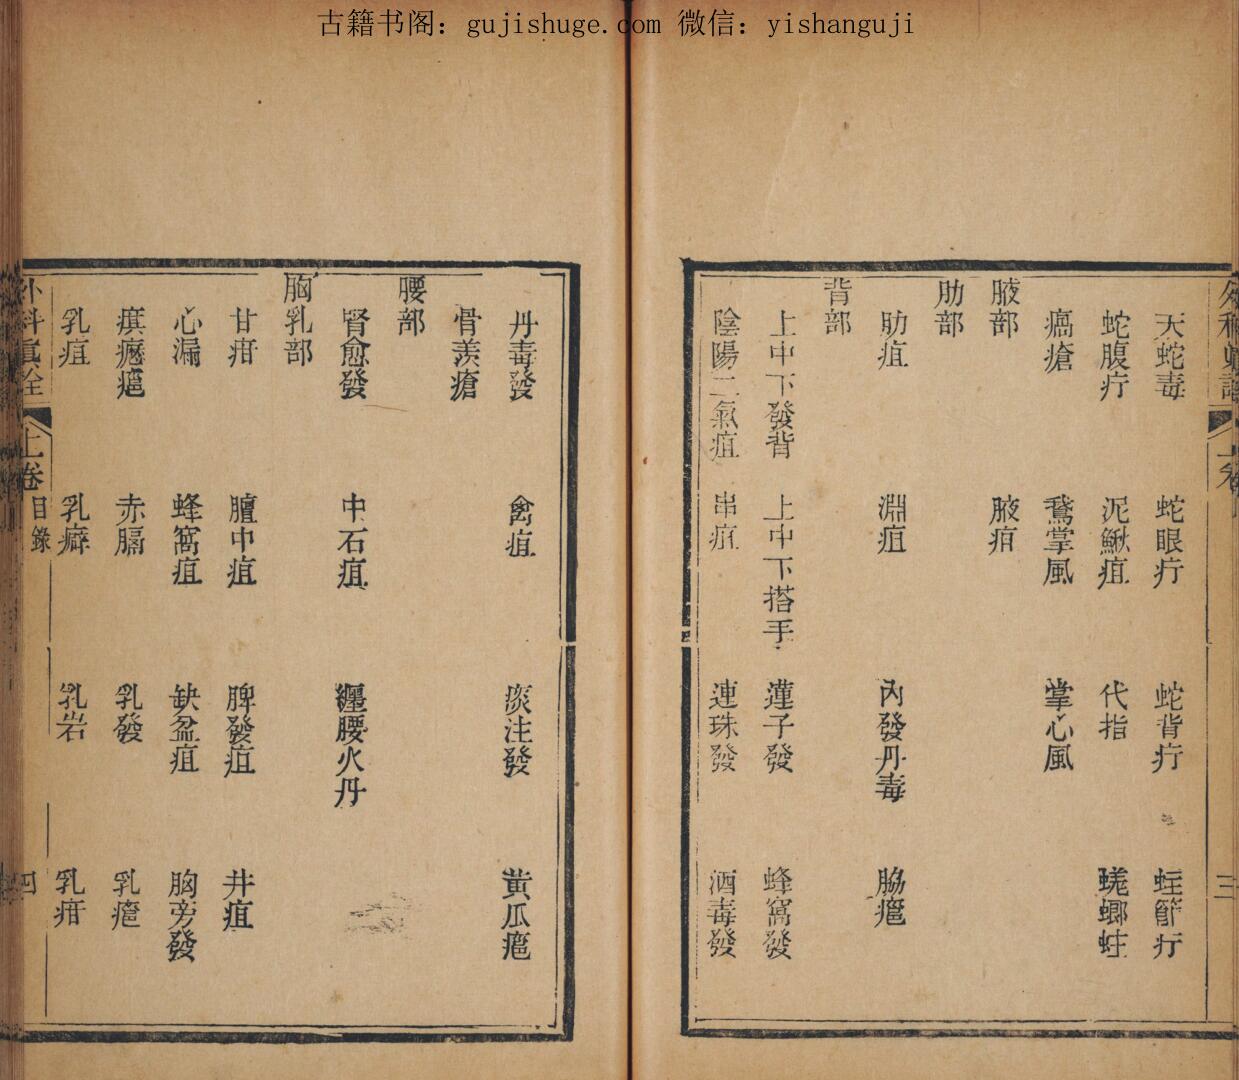 古籍书阁：gujishuge.com 微信：yishanguji
天蛇毒 蛇眼疔 蛇背疔 蛀節疔
蛇腹疔 泥鰍疽 代指 螲螂蛀
瘑瘡 鵞掌風 掌心風
腋部 腋疽
肋部
肋疽 淵疽 內發丹毒 脇癰
背部
上中下發背 上中下搭手 蓮子發 蜂窩發
陰陽二氣疽 串疽 連珠發 酒毒發
三
丹毒發 禽疽 痰注發 黃瓜癰
骨羨瘡
腰部
腎愈發 中石疽 纒腰火丹
胸乳部
甘疳 膻中疽 脾發疽 井疽
心漏 蜂窩疽 缺盆疽 胸旁發
瘨癧癰 赤膈 乳發 乳癰
乳疽 乳癖 乳岩 乳疳
外科真詮 上卷 目錄 四